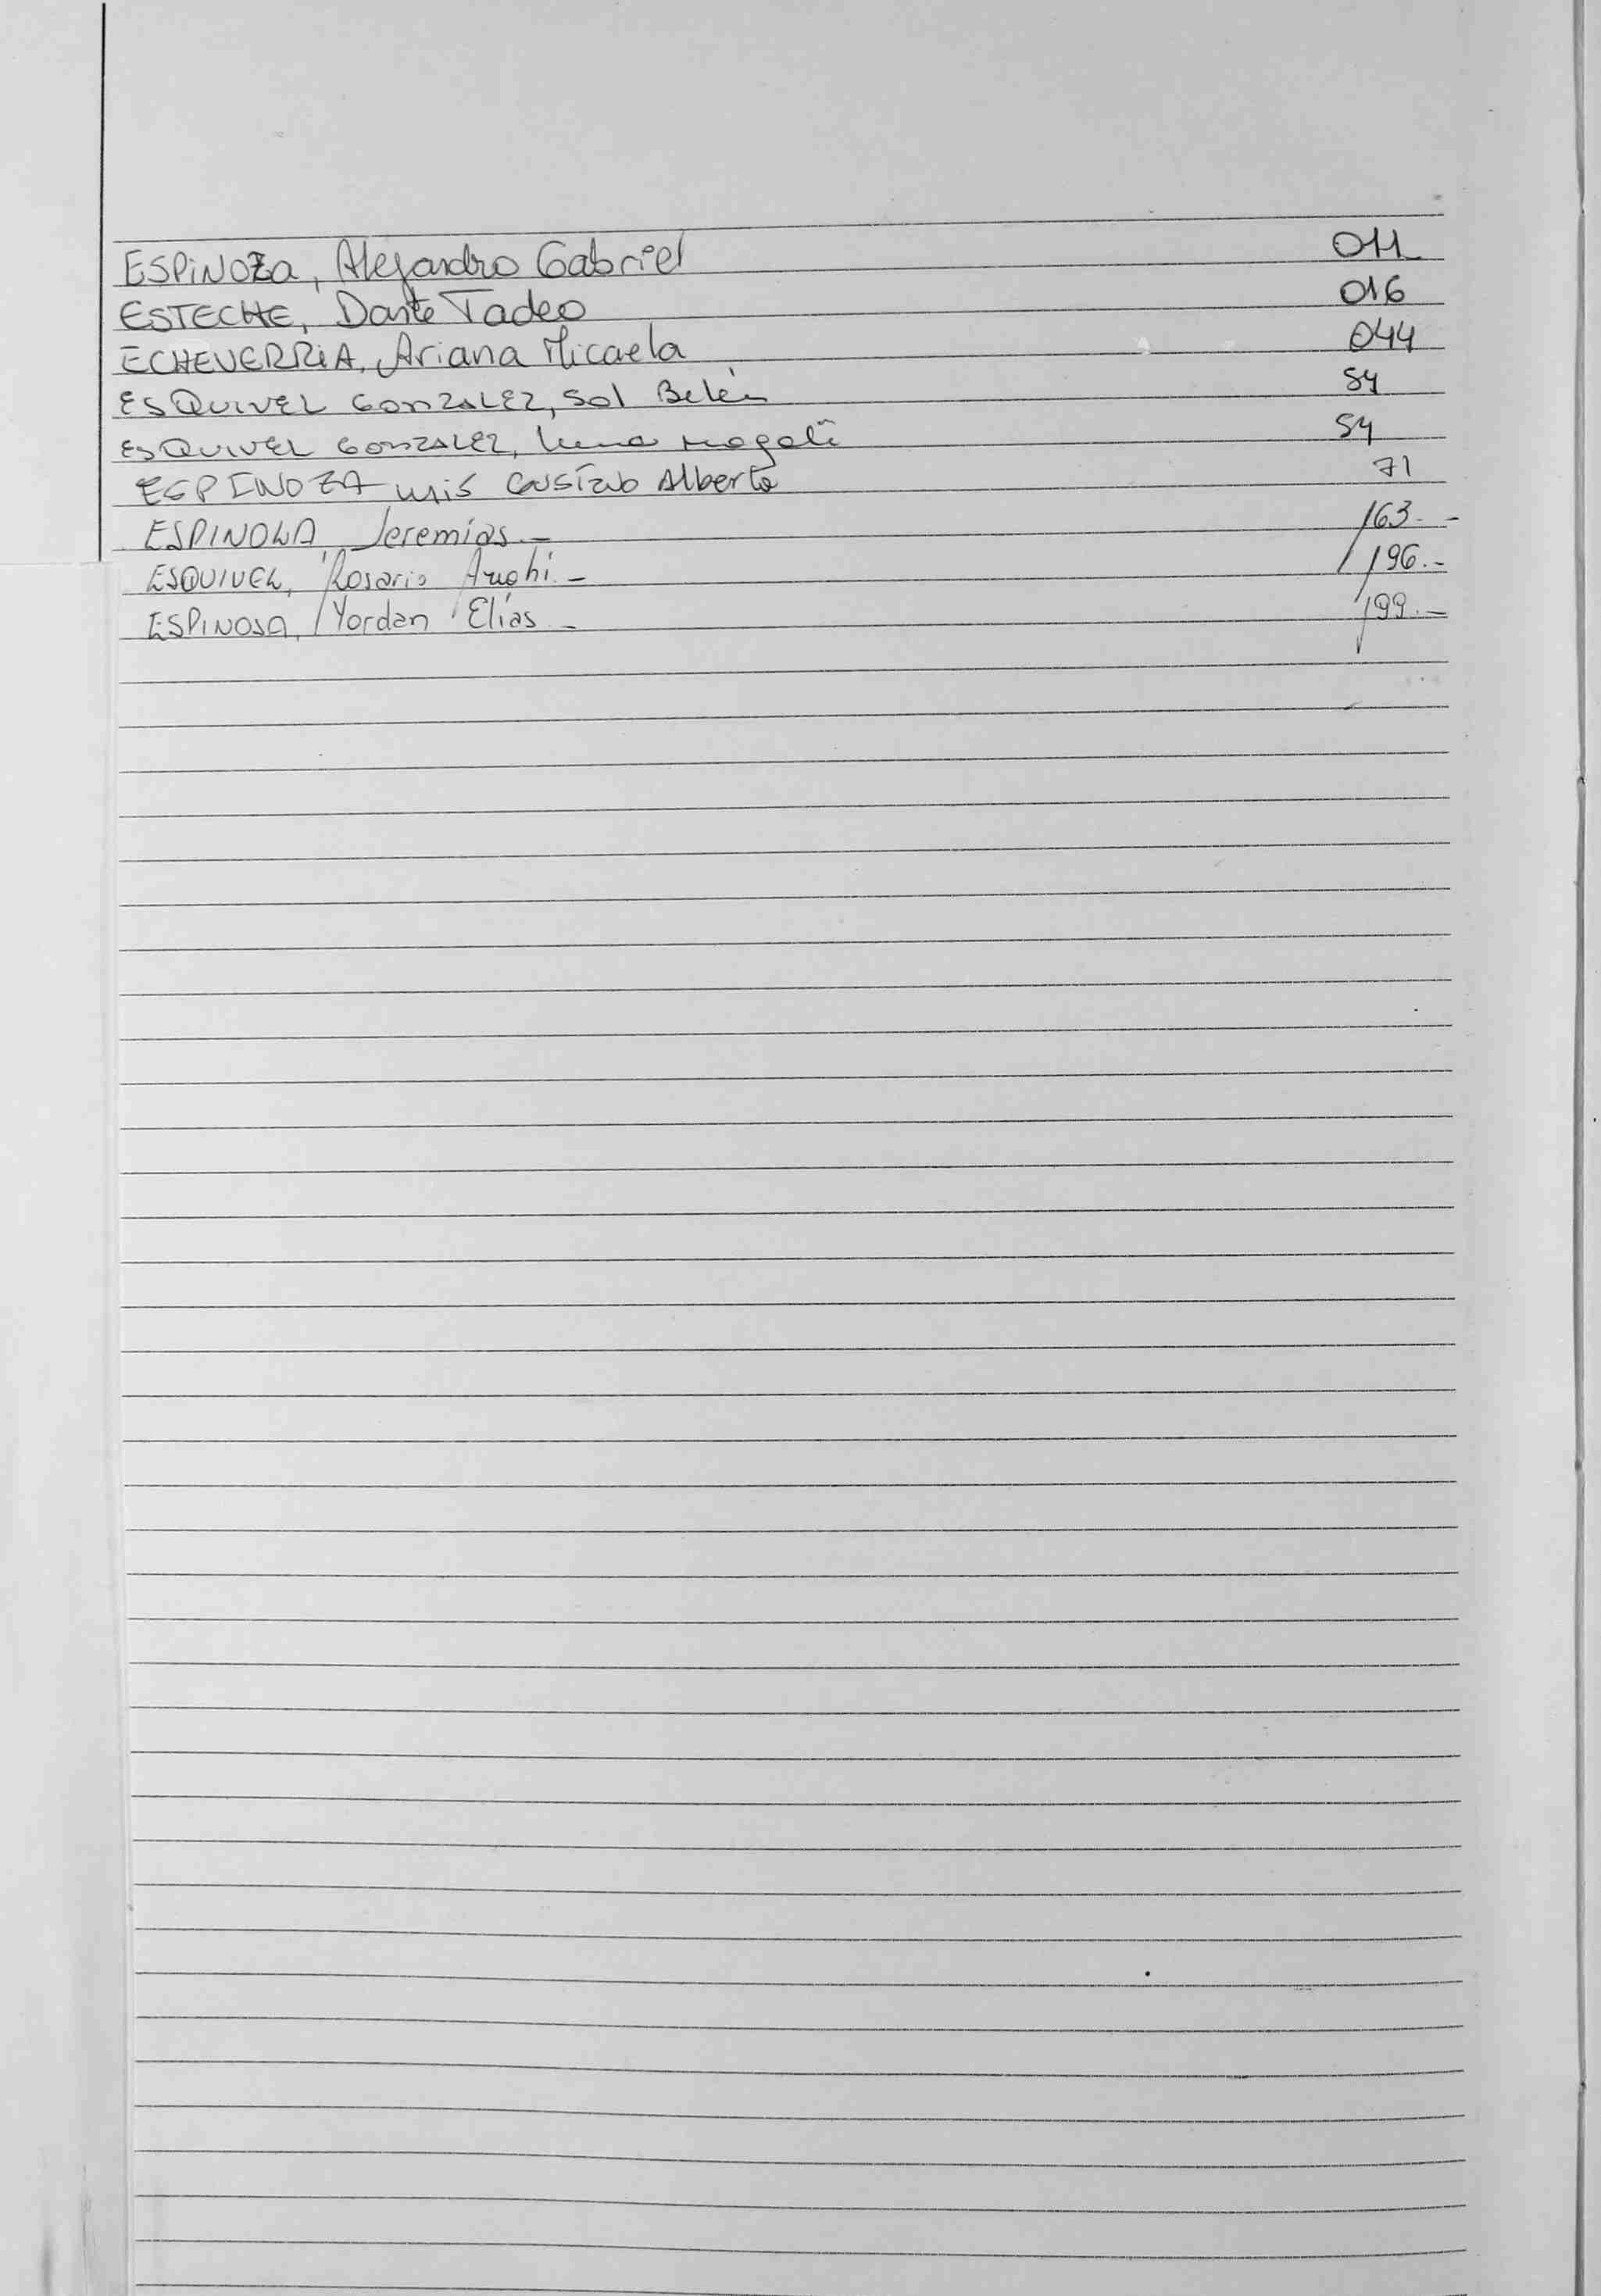 ESPINOZA, Alejandro Gabriel 011
ESTECHE, Dante Tadeo 016
ECHEVERRIA, Ariana Micaela 044
ESQUIVEL GONZALEZ, Sol Belén 54
ESQUIVEL GONZALEZ, Luna Magalí 54
ESPINOZA Luis Gustavo Alberto 71
ESPINOLA, Jeremías.- 163.-
ESQUIVEL, Rosario 196.-
ESPINOSA, Yordan Elías.- 199.-